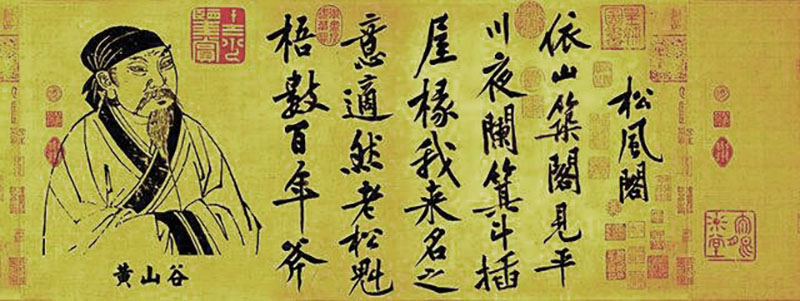 松風閣
依山築閣見平
川夜闌箕斗插
屋椽我来名之
意適然老松魁
梧數百年斧
黄山谷